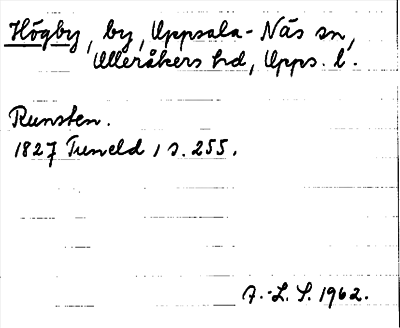 Högby, by, Uppsala-Näs sn,
Ulleråkers hd, Upps. l.
Runsten.
1827 Tuneld 1 s. 255.
A.-L. S. 1962.